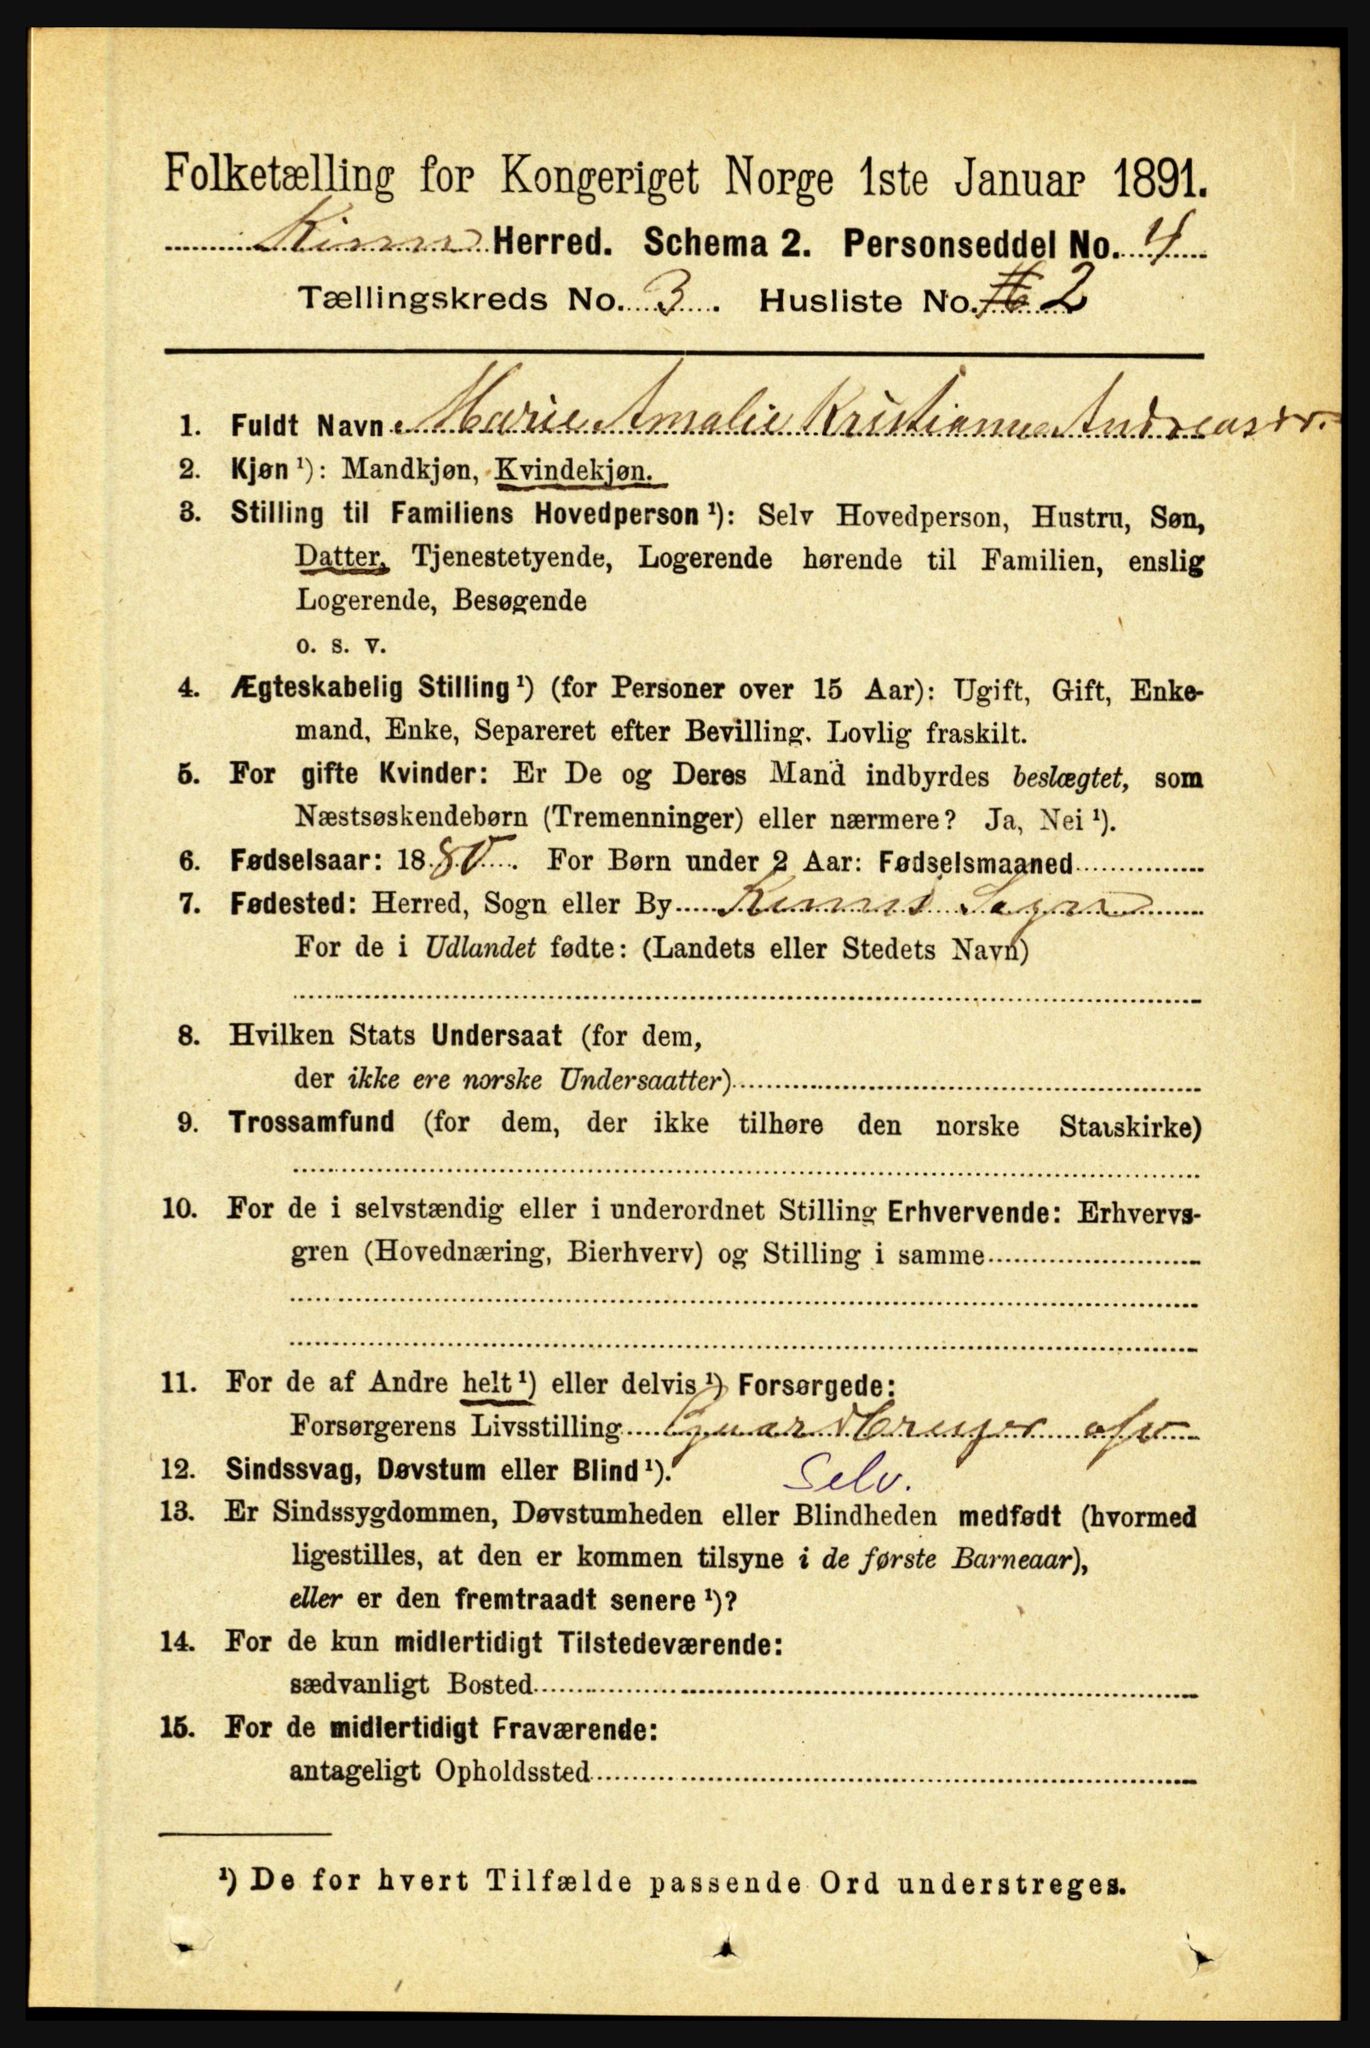 Folketælling for Kongeriget Norge 1ste Januar 1891.
Kinn Herred. Schema 2. Personseddel No. 4
Tællingskreds No. 3. Husliste No. 2
1. Fuldt Navn Marie Amalie Kristianne Andreasdr.
2. Kjøn ¹): Mandkjøn, Kvindekjøn.
3. Stilling til Familiens Hovedperson ¹): Selv Hovedperson, Hustru, Søn,
Datter, Tjenestetyende, Logerende hørende til Familien, enslig
Logerende, Besøgende
o. s. v.
4. Ægteskabelig Stilling ¹) (for Personer over 15 Aar): Ugift, Gift, Enke-
mand, Enke, Separeret efter Bevilling. Lovlig fraskilt.
5. For gifte Kvinder: Er De og Deres Mand indbyrdes beslægtet, som
Næstsøskendebørn (Tremenninger) eller nærmere? Ja, Nei ¹).
6. Fødselsaar: 1880. For Børn under 2 Aar: Fødselsmaaned
7. Fødested: Herred, Sogn eller By Kinns Sogn
For de i Udlandet fødte: (Landets eller Stedets Navn)
8. Hvilken Stats Undersaat (for dem,
der ikke ere norske Undersaatter)
9. Trossamfund (for dem, der ikke tilhøre den norske Statskirke)
10. For de i selvstændig eller i underordnet Stilling Erhvervende: Erhvervs-
gren (Hovednæring, Bierhverv) og Stilling i samme
11. For de af Andre helt ¹) eller delvis ¹) Forsørgede:
Forsørgerens Livsstilling
12. Sindssvag, Døvstum eller Blind ¹). Selv.
13. Er Sindssygdommen, Døvstumheden eller Blindheden medfødt (hvormed
ligestilles, at den er kommen tilsyne i de første Barneaar),
eller er den fremtraadt senere ¹)?
14. For de kun midlertidigt Tilstedeværende:
sædvanligt Bosted
15. For de midlertidigt Fraværende:
antageligt Opholdssted
¹) De for hvert Tilfælde passende Ord understreges.